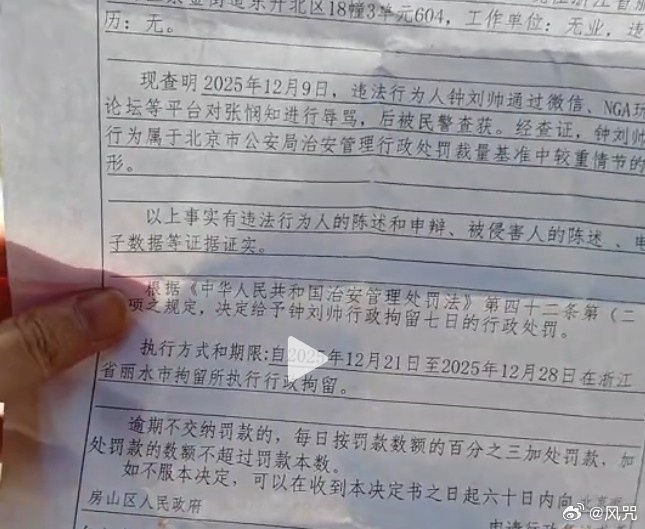 金街道东升北区18幢3单元604，工作单位：无业，违
历：无。
现查明2025年12月9日，违法行为人钟刘帅通过微信、NGA玩
论坛等平台对张悯知进行辱骂，后被民警查获。经查证，钟刘帅
行为属于北京市公安局治安管理行政处罚裁量基准中较重情节的
形。
以上事实有违法行为人的陈述和申辩、被侵害人的陈述、电
子数据等证据证实。
根据《中华人民共和国治安管理处罚法》第四十二条第（二
项之规定，决定给予钟刘帅行政拘留七日的行政处罚。
执行方式和期限:自2025年12月21日至2025年12月28日在浙江
省丽水市拘留所执行行政拘留。
逾期不交纳罚款的，每日按罚款数额的百分之三加处罚款，加
处罚款的数额不超过罚款本数。
如不服本决定，可以在收到本决定书之日起六十日内向北京
房山区人民政府
@风咒